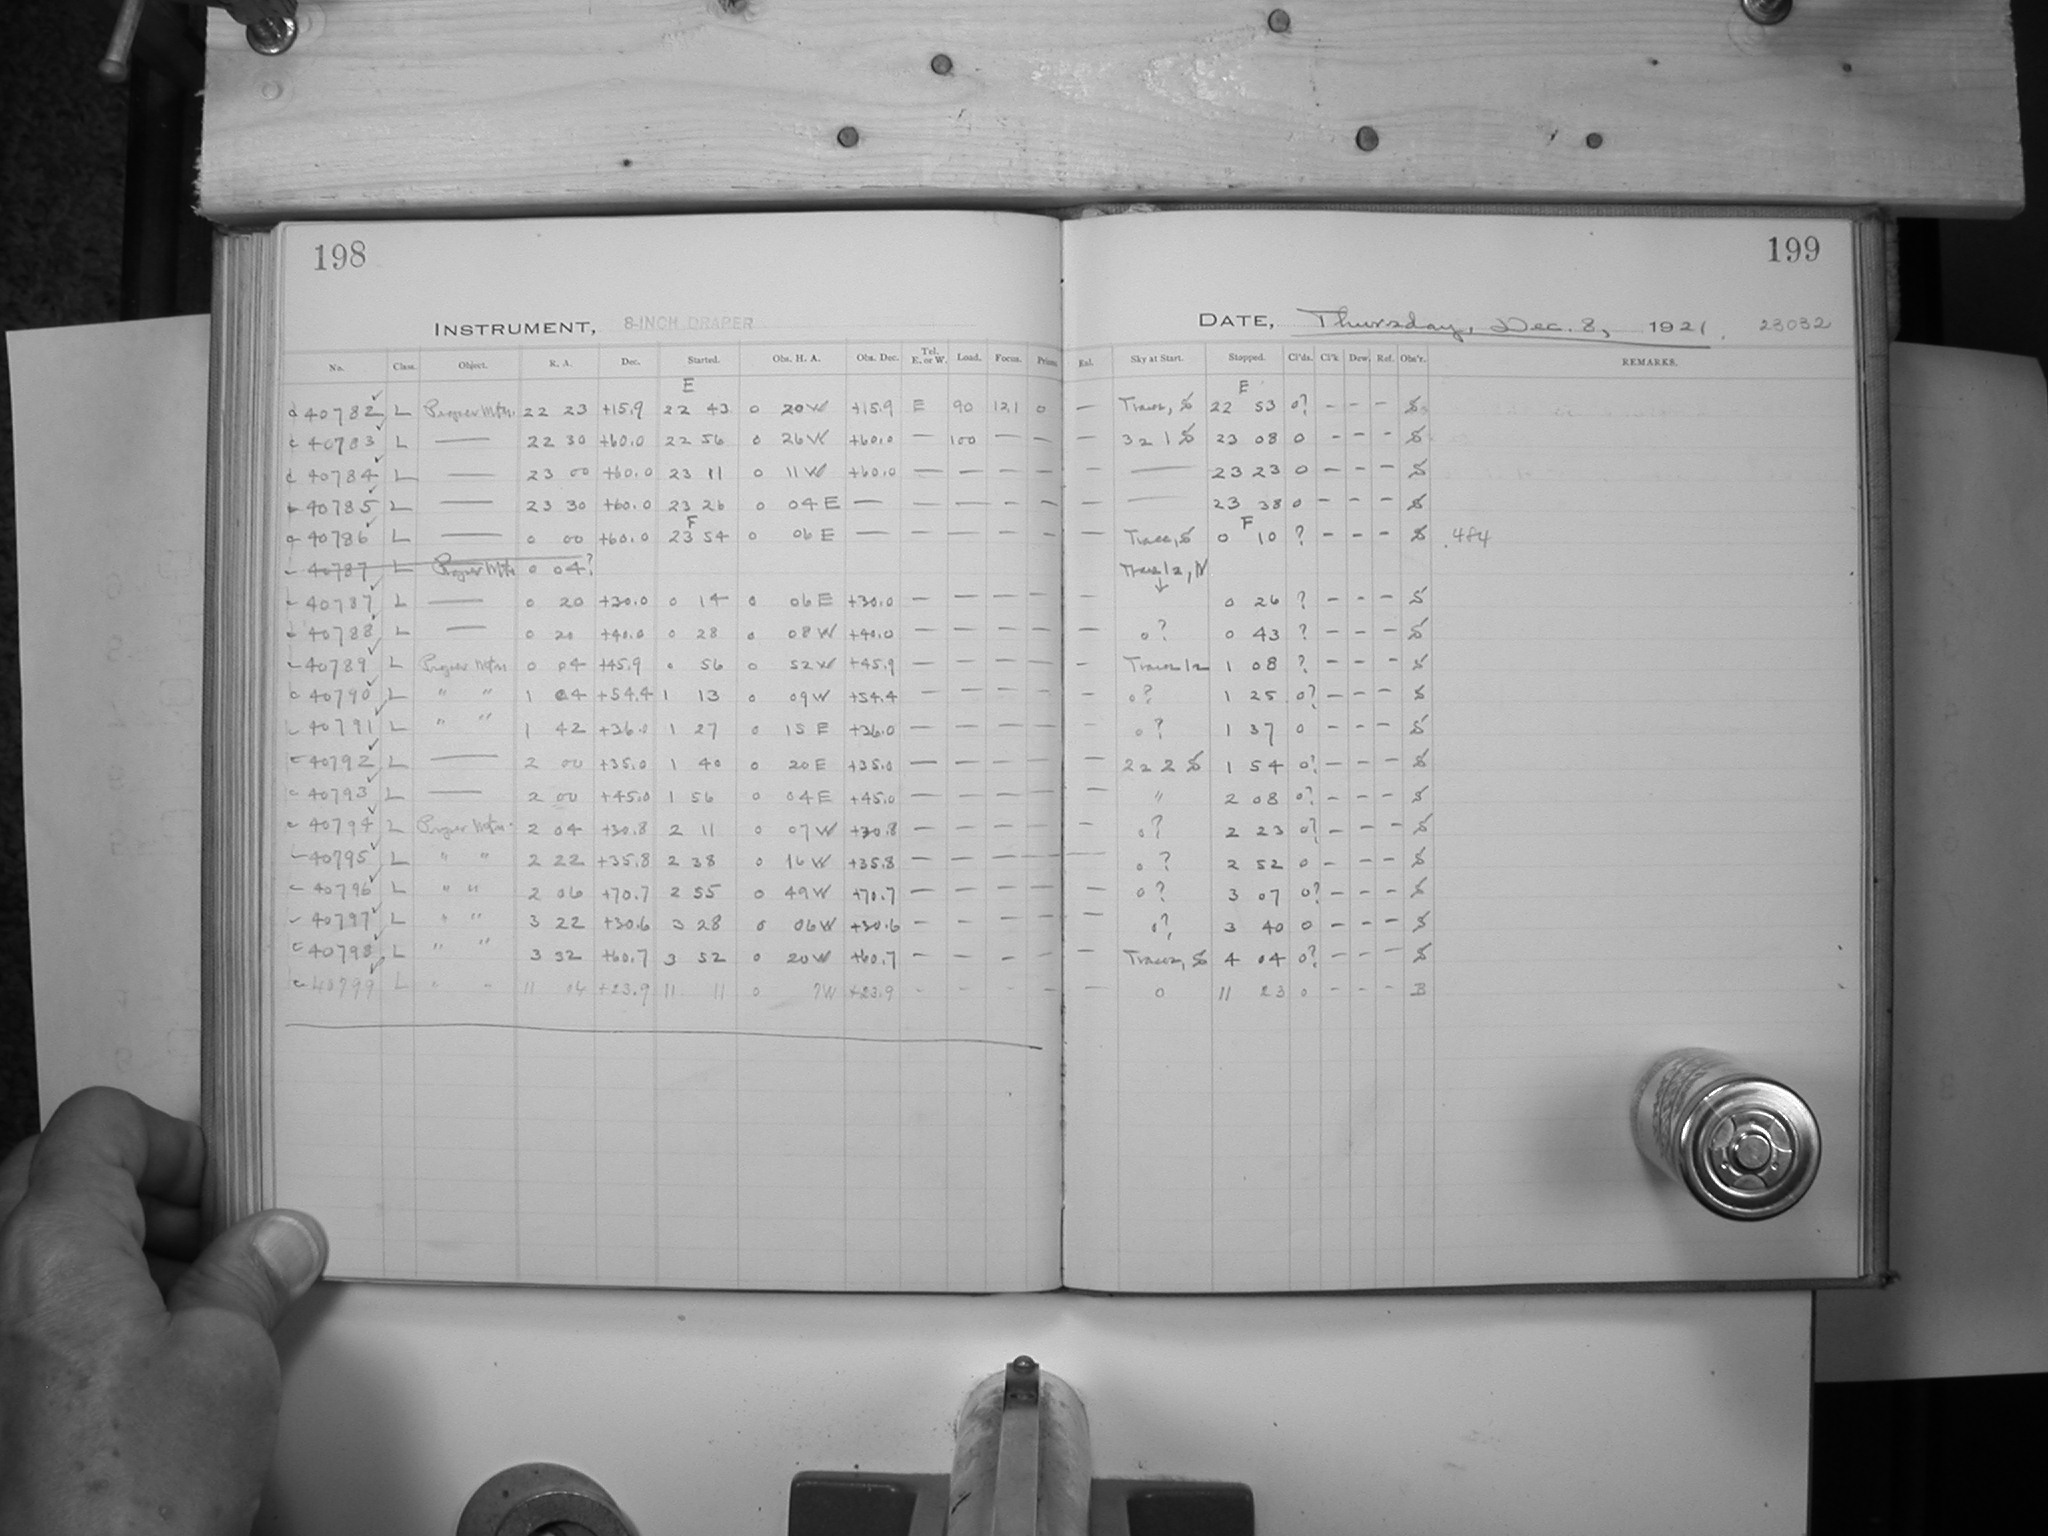 198
199
INSTRUMENT, 8-INCH DRAPER
DATE, Thursday, Dec. 8, 1921. 23032
No. Class. Object. R. A. Dec. Started. Obs. H. A. Obs. Dec. Tel. E. or W. Load. Focus. Prisms Exl. Sky at Start. Stopped. Cl'ds. Cl'k Dew. Ref. Obs'r. REMARKS.
E E
40782 L Proper Motn. 22 23 +15.9 22 43 0 20 W +15.9 E 90 12.1 0 — Traces, S 22 53 0? – – – S
40783 L — 22 30 +60.0 22 56 0 26 W +60.0 — 100 — — — 3 2 1 S 23 08 0 – – – S
40784 L — 23 00 +60.0 23 11 0 11 W +60.0 — — — — — — 23 23 0 – – – S
40785 L — 23 30 +60.0 23 26 0 04 E — — — — — — — 23 38 0 – – – S
F F
40786 L — 0 00 +60.0 23 54 0 06 E — — — — — — Trace, S 0 10 ? – – – S .484
40787 L Proper Motn 0 04?
40787 L — 0 20 +30.0 0 14 0 06 E +30.0 — — — — — 0 26 ? – – – S
40788 L — 0 20 +40.0 0 28 0 08 W +40.0 — — — — — 0? 0 43 ? – – – S
40789 L Proper Motn 0 04 +45.9 0 56 0 52 W +45.9 — — — — – 1 08 ? – – – S
40790 L " " 1 04 +54.4 1 13 0 09 W +54.4 — — — — — 0? 1 25 0? – – – S
40791 L " " 1 42 +36.0 1 27 0 15 E +36.0 — — — — — 0? 1 37 0 – – – S
40792 L — 2 00 +35.0 1 40 0 20 E +35.0 — — — — — 2 2 2 S 1 54 0? – – – S
40793 L — 2 00 +45.0 1 56 0 04 E +45.0 — — — — — " 2 08 0? – – – S
40794 L Proper Motn. 2 04 +30.8 2 11 0 07 W +30.8 — — — — — 0? 2 23 0? – – – S
40795 L " " 2 22 +35.8 2 38 0 16 W +35.8 — — — — — 0? 2 52 0 – – – S
40796 L " " 2 06 +70.7 2 55 0 49 W +70.7 — — — — — 0? 3 07 0? – – – S
40797 L " " 3 22 +30.6 3 28 0 06 W +30.6 – — — — — 0? 3 40 0 – – – S
40798 L " " 3 32 +60.7 3 52 0 20 W +60.7 – — – — — Traces, S 4 04 0? – – – S
40799 L " " 11 04 +23.9 11 11 0 7 W +23.9 – – – – — 0 11 23 0 – – – B